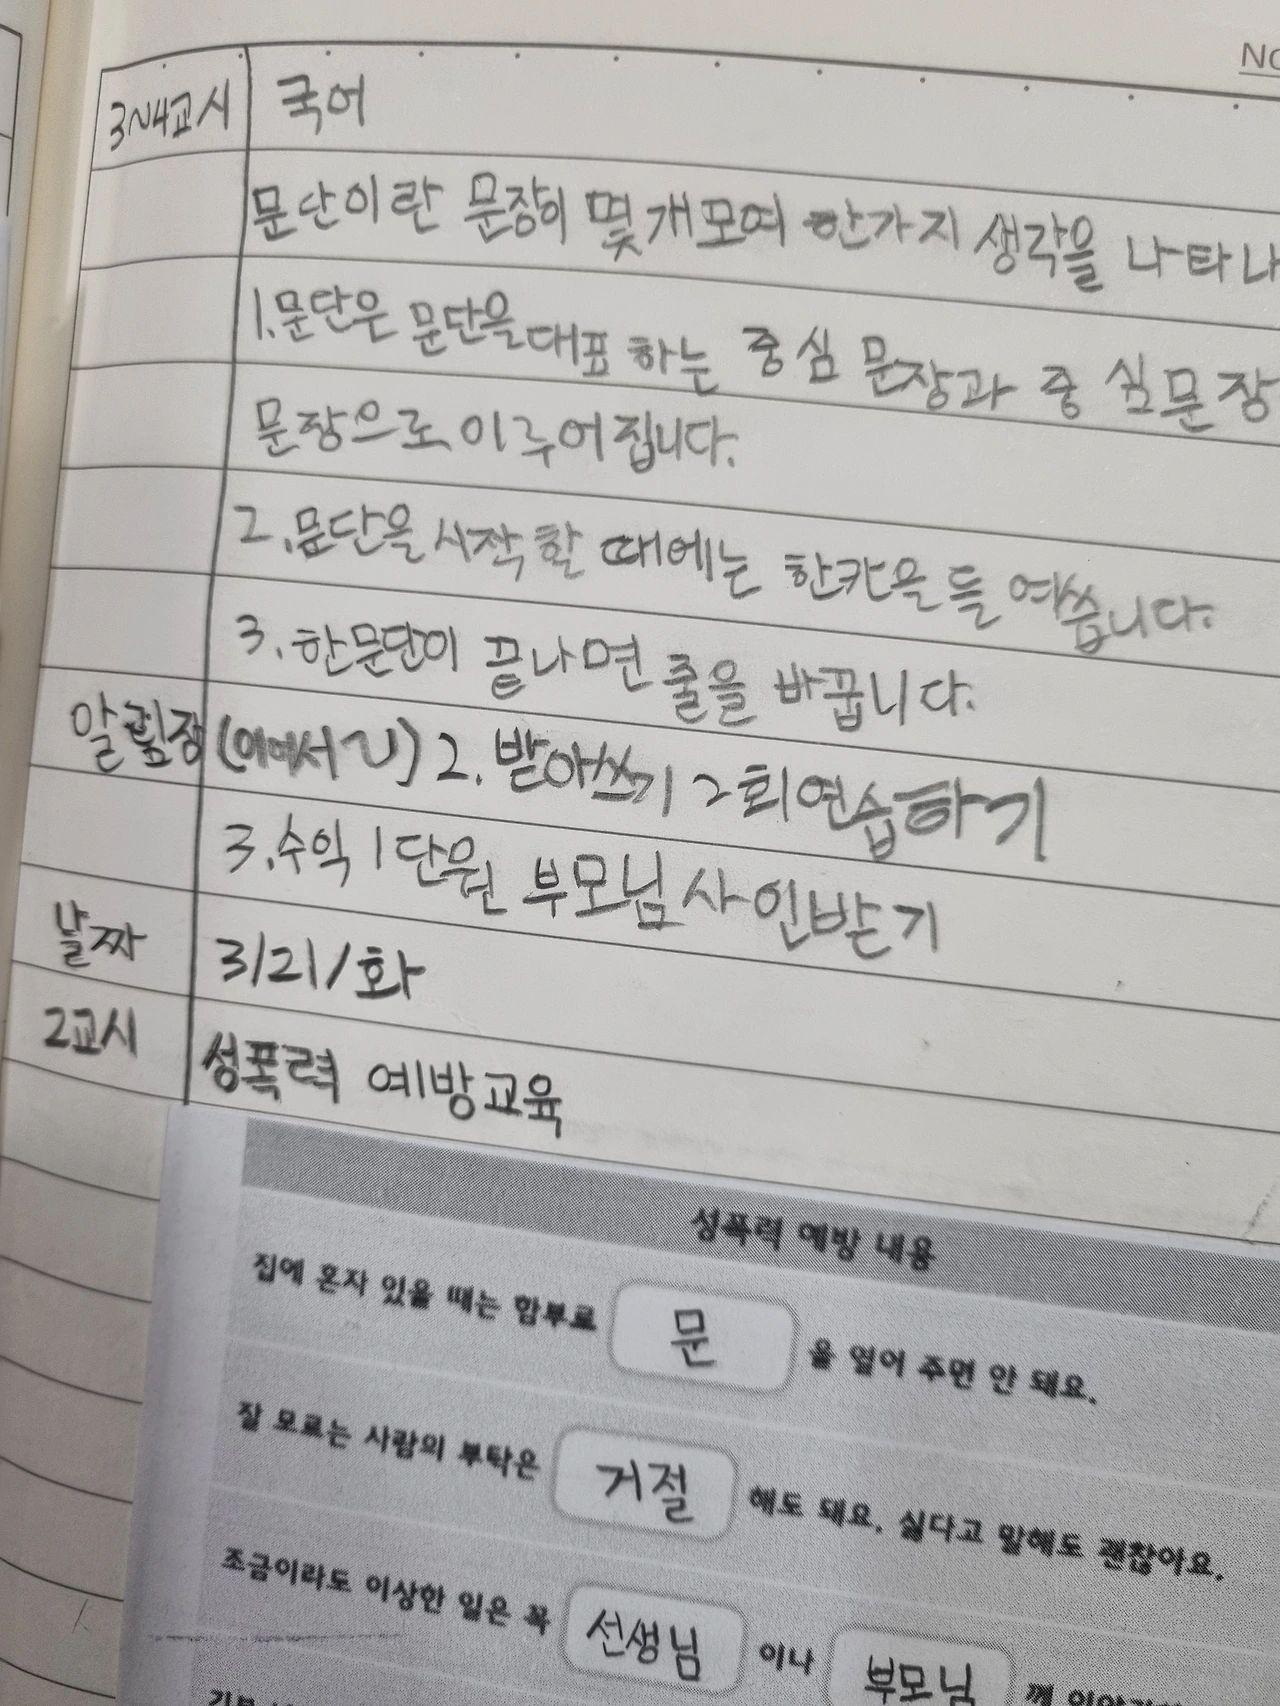 NO
3~4교시 국어
문단이란 문장이 몇 개 모여 한가지 생각을 나타나
1. 문단은 문단을 대표 하는 중심 문장과 중심문장
문장으로 이루어 집니다.
2. 문단을 시작 할 때에는 한칸을 들여씁니다.
3. 한 문단이 끝나면 줄을 바꿉니다.
알림장 2. 받아쓰기 2회 연습하기
3. 수익 1단원 부모님 사인받기
날짜 3/21/화
2교시 성폭력 예방교육
성폭력 예방 내용
집에 혼자 있을 때는 함부로 문 을 열어 주면 안 돼요.
잘 모르는 사람의 부탁은 거절 해도 돼요. 싫다고 말해도 괜찮아요.
조금이라도 이상한 일은 꼭 선생님 이나 부모님 께